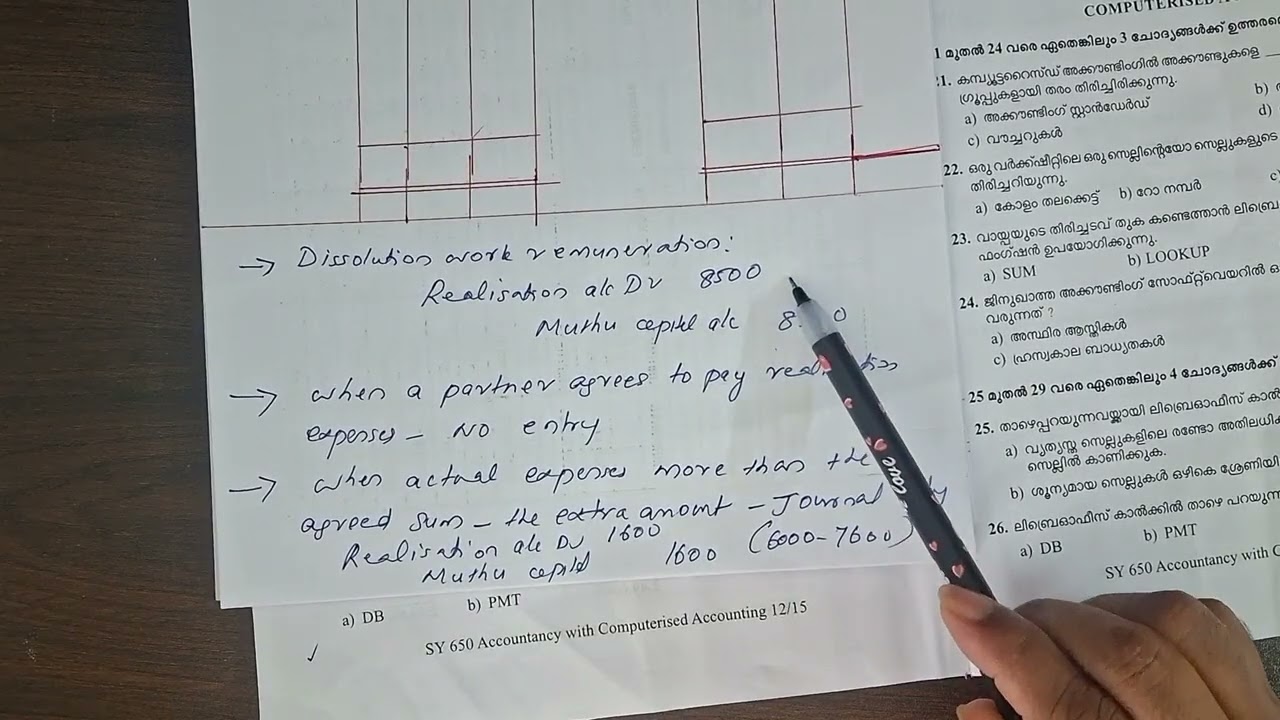 → Dissolution work remuneration:
Realisation a/c Dr 8500
Muthu capital a/c
→ when a partner agrees to pay
expenses – NO entry
→ when actual expenses more than the
agreed sum – the extra amount – Journal
Realisation a/c Dr 1600
Muthu capital 1600 (6000-7600)
a) DB b) PMT
SY 650 Accountancy with Computerised Accounting 12/15
1 മുതൽ 24 വരെ ഏതെങ്കിലും 3 ചോദ്യങ്ങൾക്ക്
1. കമ്പ്യൂട്ടറൈസ്ഡ് അക്കൗണ്ടിംഗിൽ അക്കൗണ്ടുകളെ
ഗ്രൂപ്പുകളായി തരം തിരിച്ചിരിക്കുന്നു.
a) അക്കൗണ്ടിംഗ് സ്റ്റാൻഡേർഡ് b)
c) വൗച്ചറുകൾ d)
22. ഒരു വർക്ക്ഷീറ്റിലെ ഒരു സെല്ലിന്റെയോ സെല്ലുകളുടെ
തിരിച്ചറിയുന്നു.
a) കോളം തലക്കെട്ട് b) റോ നമ്പർ
23. വായ്പയുടെ തിരിച്ചടവ് തുക കണ്ടെത്താൻ
ഫംഗ്ഷൻ ഉപയോഗിക്കുന്നു.
a) SUM b) LOOKUP
24. ജിനുഖാത്ത അക്കൗണ്ടിംഗ് സോഫ്റ്റ്‌വെയറിൽ
വരുന്നത് ?
a) അസ്ഥിര ആസ്തികൾ
c) ഹ്രസ്വകാല ബാധ്യതകൾ
25 മുതൽ 29 വരെ ഏതെങ്കിലും 4 ചോദ്യങ്ങൾക്ക്
25. താഴെപ്പറയുന്നവയ്ക്കായി ലിബ്രെഓഫീസ്
a) വ്യത്യസ്ത സെല്ലുകളിലെ രണ്ടോ
സെല്ലിൽ കാണിക്കുക.
b) ശൂന്യമായ സെല്ലുകൾ ഒഴികെ
26. ലിബ്രെഓഫീസ് കാൽക്കിൽ താഴെ
a) DB b) PMT
SY 650 Accountancy with